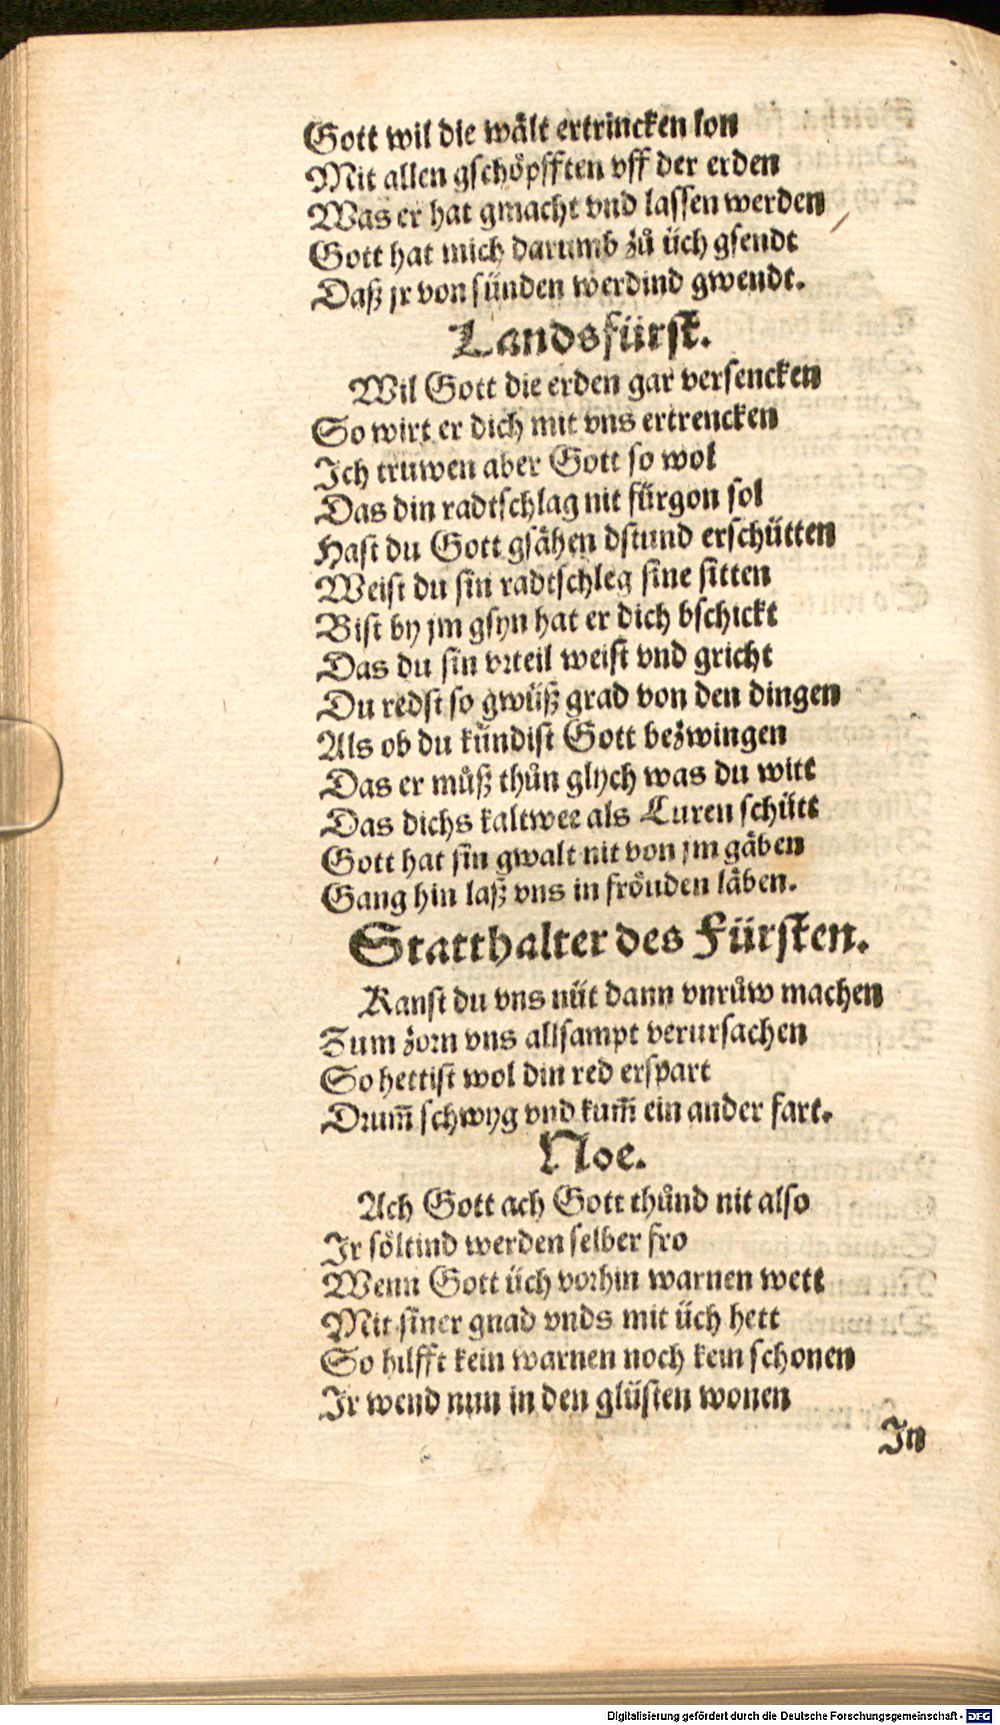 Gott wil die wält ertrincken lon
Mit allen gschöpfften vff der erden
Was er hat gmacht vnd lassen werden
Gott hat mich darumb zů üch gsendt
Daß jr von sünden werdind gwendt.
Landsfürst.
Wil Gott die erden gar versencken
So wirt er dich mit vns ertrencken
Ich truwen aber Gott so wol
Das din radtschlag nit fürgon sol
Hast du Gott gsähen dstund erschütten
Weist du sin radtschleg sine sitten
Bist by jm gsyn hat er dich bschickt
Das du sin vrteil weist vnd gricht
Du redst so gwüß grad von den dingen
Als ob du kündist Gott bezwingen
Das er můß thůn glych was du witt
Das dichs kaltwee als Curen schütt
Gott hat sin gwalt nit von jm gäben
Gang hin laß vns in fröuden läben.
Statthalter des Fürsten.
Kanst du vns nüt dann vnrůw machen
Zum zorn vns allsampt verursachen
So hettist wol din red erspart
Drum̄ schwyg vnd kum̄ ein ander fart.
Noe.
Ach Gott ach Gott thůnd nit also
Ir söltind werden selber fro
Wenn Gott üch vorhin warnen wett
Mit siner gnad vnds mit üch hett
So hilfft kein warnen noch kein schonen
Ir wend nun in den glüsten wonen
In
Digitalisierung gefördert durch die Deutsche Forschungsgemeinschaft - DFG